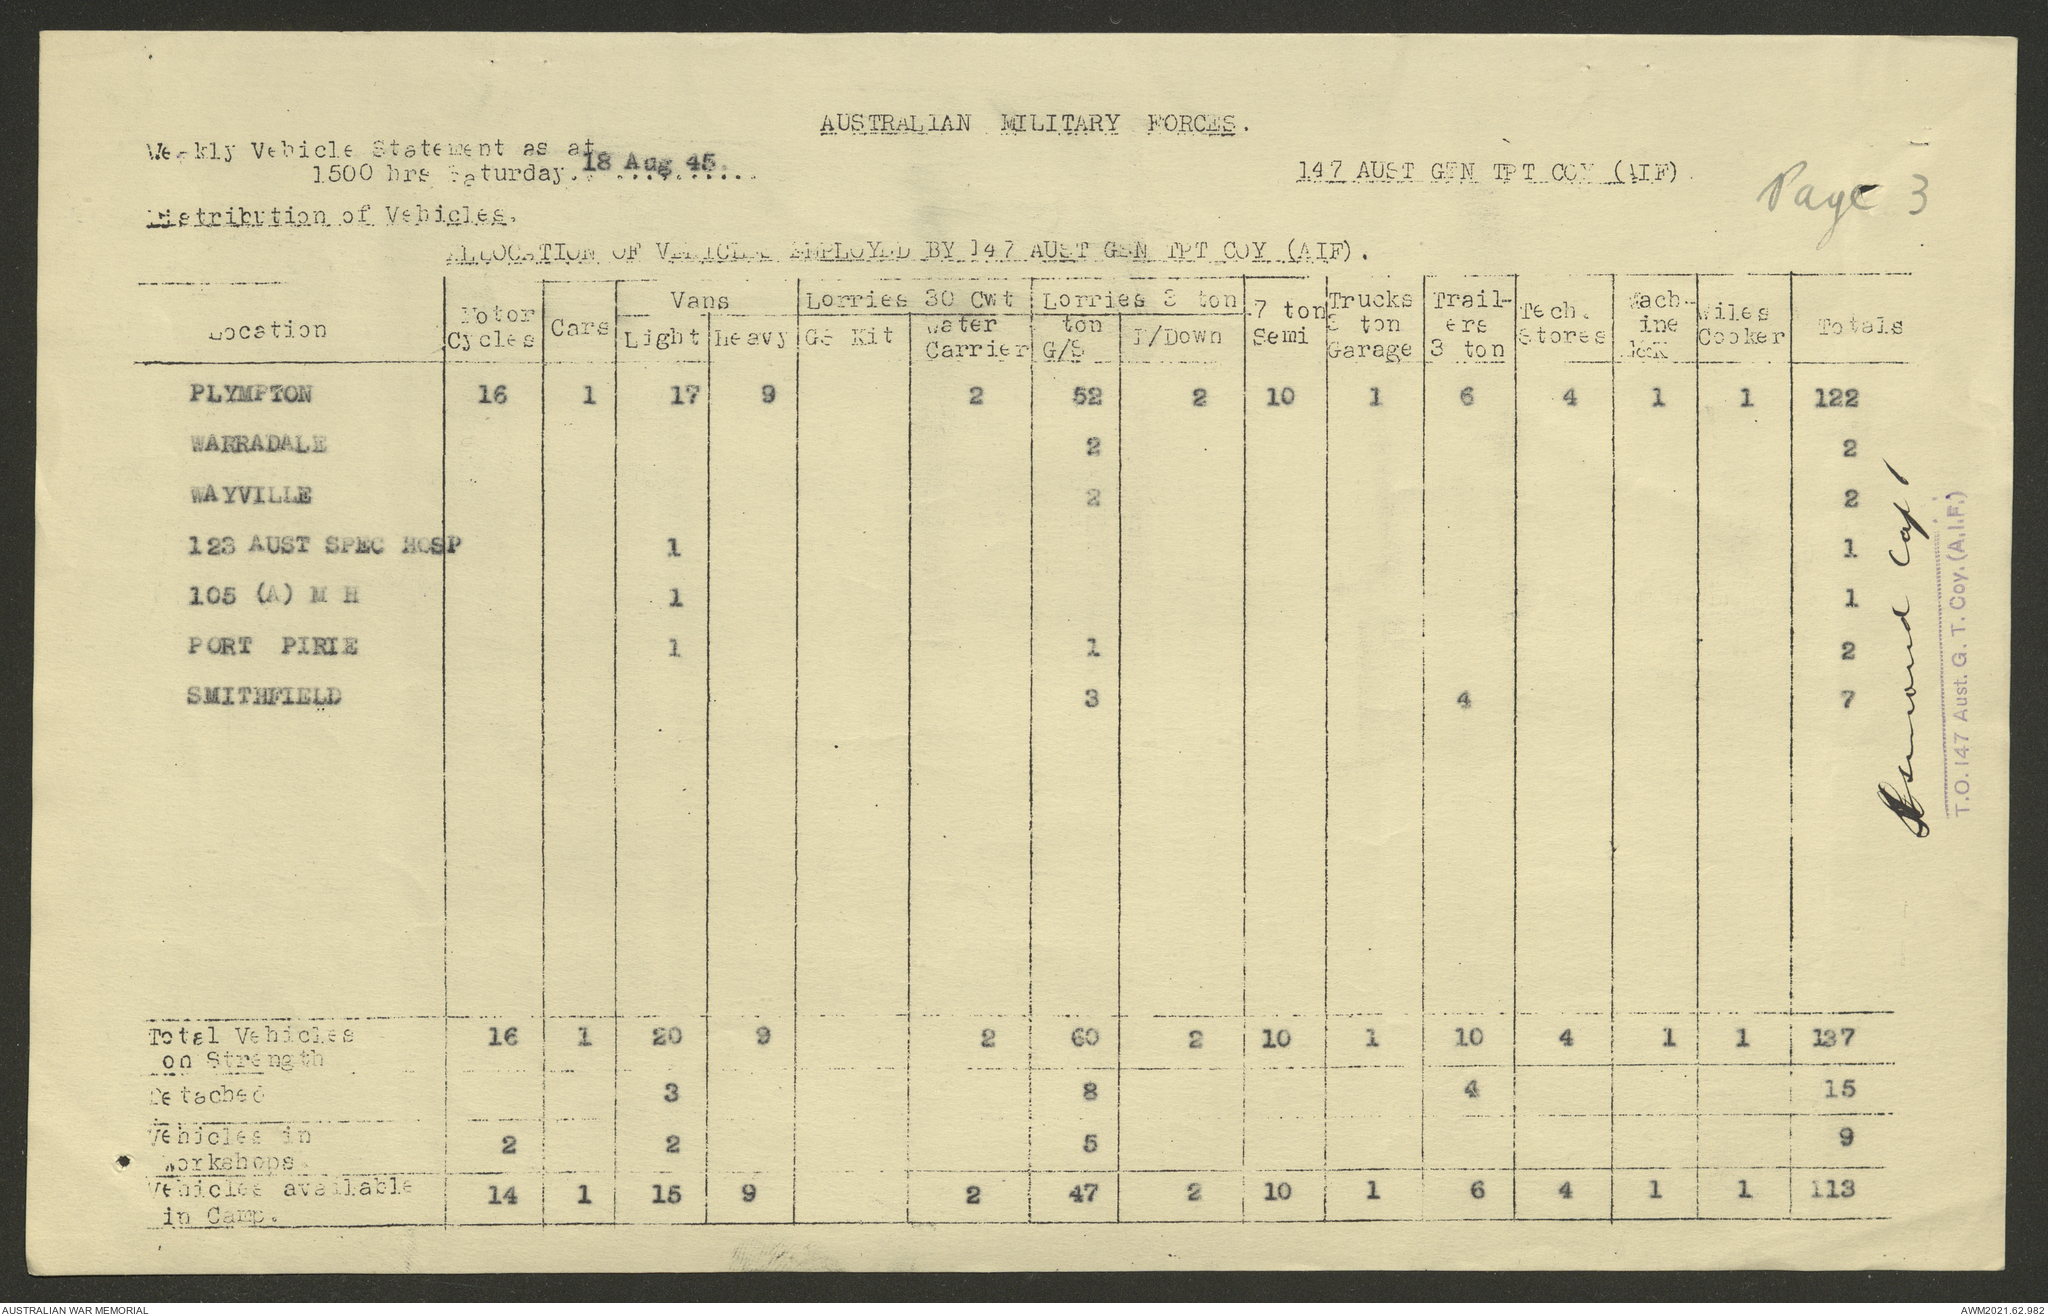 AUSTRALIAN MILITARY FORCES.
Weekly Vehicle Statement as at
1500 hrs Saturday. 18 Aug 45.
147 AUST GEN TPT COY (AIF).
Page 3
Distribution of Vehicles.
ALLOCATION OF VEHICLES EMPLOYED BY 147 AUST GEN TPT COY (AIF).
Location Motor Cycles Cars Vans Light Heavy Lorries 30 Cwt GS Kit Water Carrier Lorries 3 ton 3 ton G/S T/Down 7 ton Semi Trucks 3 ton Garage Trail-ers 3 ton Tech. Stores Mach-ine Wiles Cooker Totals
PLYMPTON 16 1 17 9 2 52 2 10 1 6 4 1 1 122
WARRADALE 2 2
WAYVILLE 2 2
123 AUST SPEC HOSP 1 1
105 (A) M H 1 1
PORT PIRIE 1 1 2
SMITHFIELD 3 4 7
Total Vehicles on Strength 16 1 20 9 2 60 2 10 1 10 4 1 1 137
Detached 3 8 4 15
Vehicles in Workshops. 2 2 5 9
Vehicles available in Camp. 14 1 15 9 2 47 2 10 1 6 4 1 1 113
Capt
T.O. 147 Aust. G. T. Coy. (A.I.F.)
AUSTRALIAN WAR MEMORIAL
AWM2021.62.982